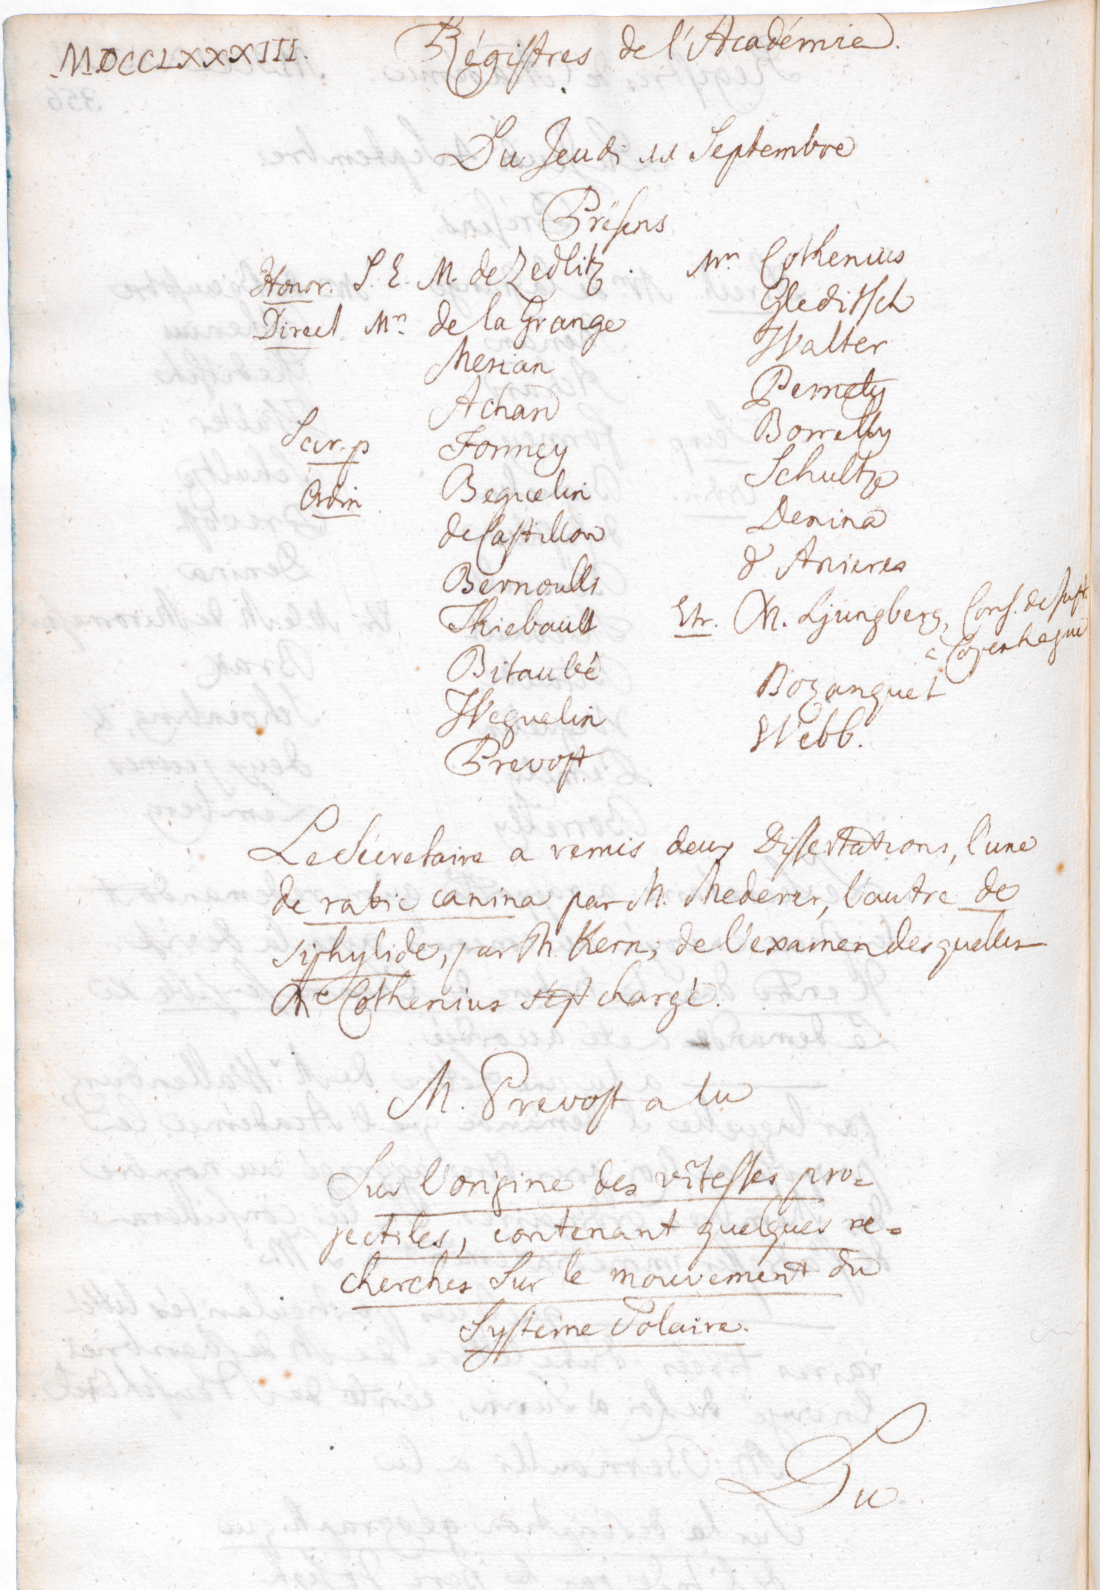 MDCCLXXXIII.
Régistres de l'Académie.
Du Jeudi 11 Septembre
Présens
Honor. S. E. M. de Zedlitz.
Direct. Mrs de la Grange
Merian
Achard
Secr. p Formey
Ordin Beguelin
de Castillon
Bernoulli
Thiebault
Bitaubé
Weguelin
Prevost
Mrs Cothenius
Gleditsch
Walter
Pernety
Borrelly
Schultze
Denina
d'Anieres
Etr. M. Ljungberg, Cons. de Just.
à Copenhague
Bozanquet
Webb.
Le Sécretaire a remis deux Dissertations, l'une
de rabie canina par M. Mederer, l'autre de
Siphylide, par M. Kern; de l'examen desquelles
Mr Cothenius s'est chargé.
M. Prevost a lu
Sur l'origine des vitesses pro=
jectiles, contenant quelques re=
cherches sur le mouvement du
Systeme Solaire.
Du